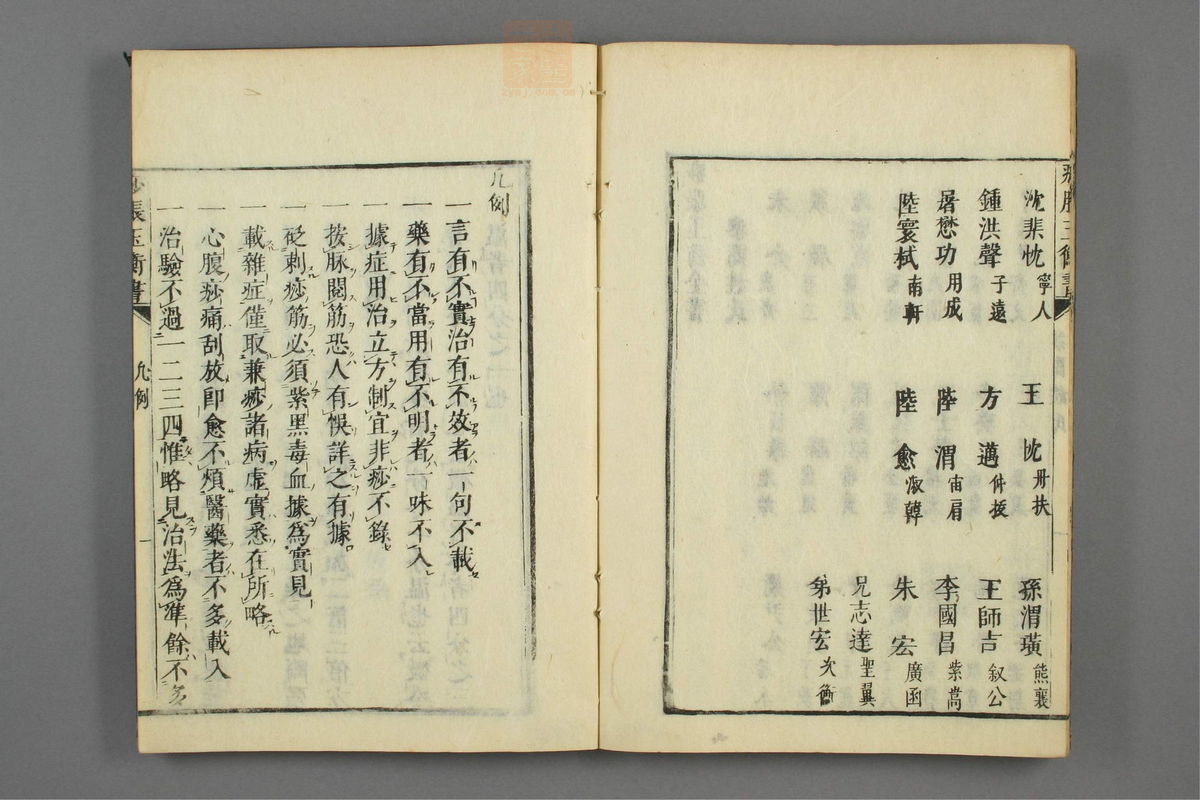 沈棐忱 寧人 王忱 丹扶 孫渭璜 熊襄
鍾洪聲 子遠 方邁 王師吉 叙公
屠懋功 用成 陸渭 李國昌 紫嵩
陸寰栻 南軒 陸愈 朱宏 廣函
兄志達 聖翼
弟世宏 次衡
凡例
一言有不實治有不效者一句不載
一藥有不當用有不明者一味不入
一據症用治立方制宜非痧不錄
一按脉閱筋恐人有悞詳之有據
一砭刺痧筋必須紫黑毒血據爲實見
一載雜症僅取兼痧諸病虛實悉在所略
一心腹痧痛刮放即愈不煩醫藥者不多載入
一治驗不過一二三四惟略見治法爲準餘不多
痧脹玉衡書 凡例 一